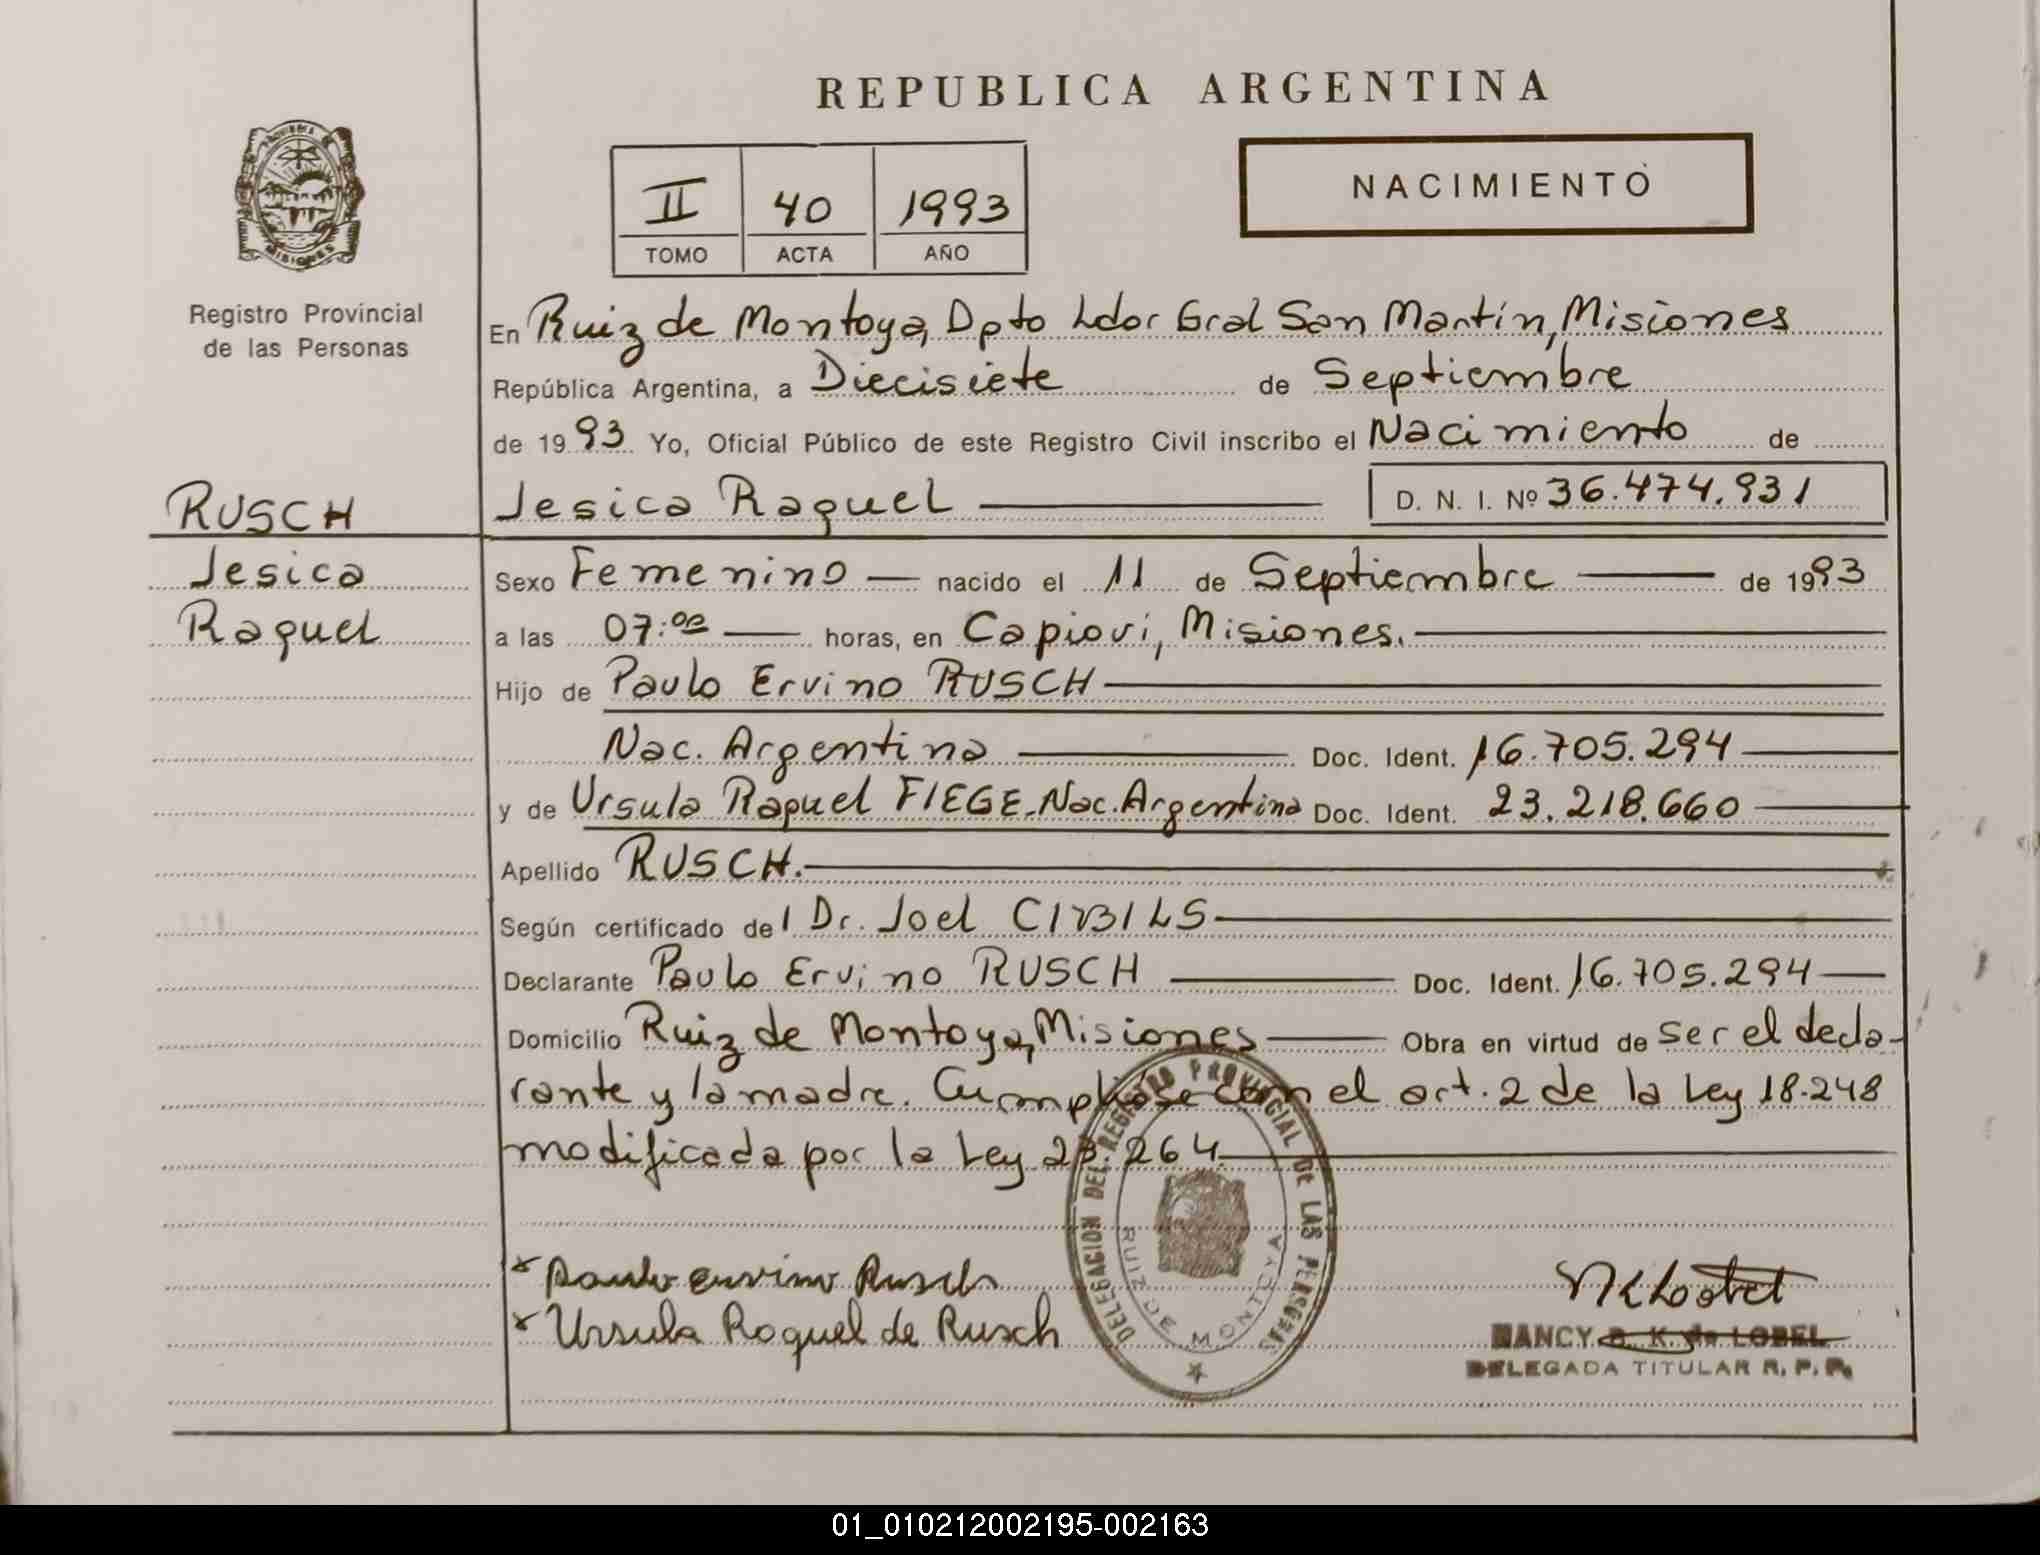 REPUBLICA ARGENTINA
MISIONES
Registro Provincial
de las Personas
II 40 1993
TOMO ACTA AÑO
NACIMIENTO
En Ruiz de Montoya, Dpto Ldor Gral San Martín, Misiones
República Argentina, a Diecisiete de Septiembre
de 1993 Yo, Oficial Público de este Registro Civil inscribo el Nacimiento de
RUSCH
Jesica Raquel D. N. I. Nº 36.474.931
Jesica
Raquel
Sexo Femenino nacido el 11 de Septiembre de 1993
a las 07:00 horas, en Capioví, Misiones.
Hijo de Paulo Ervino RUSCH
Nac. Argentina Doc. Ident. 16.705.294
y de Ursula Raquel FIEGE. Nac. Argentina Doc. Ident. 23.218.660
Apellido RUSCH.
Según certificado del Dr. Joel CIRBILS
Declarante Paulo Ervino RUSCH Doc. Ident. 16.705.294
Domicilio Ruiz de Montoya, Misiones Obra en virtud de ser el decla-
rante y la madre. Cumplióse con el art. 2 de la Ley 18.248
modificada por la Ley 23.264
DELEGACION DEL REGISTRO PROVINCIAL DE LAS PERSONAS
RUIZ DE MONTOYA
x Paulo Ervino Rusch
x Ursula Raquel de Rusch
NANCY B. K. de LOBEL
DELEGADA TITULAR R. P. P.
01_010212002195-002163